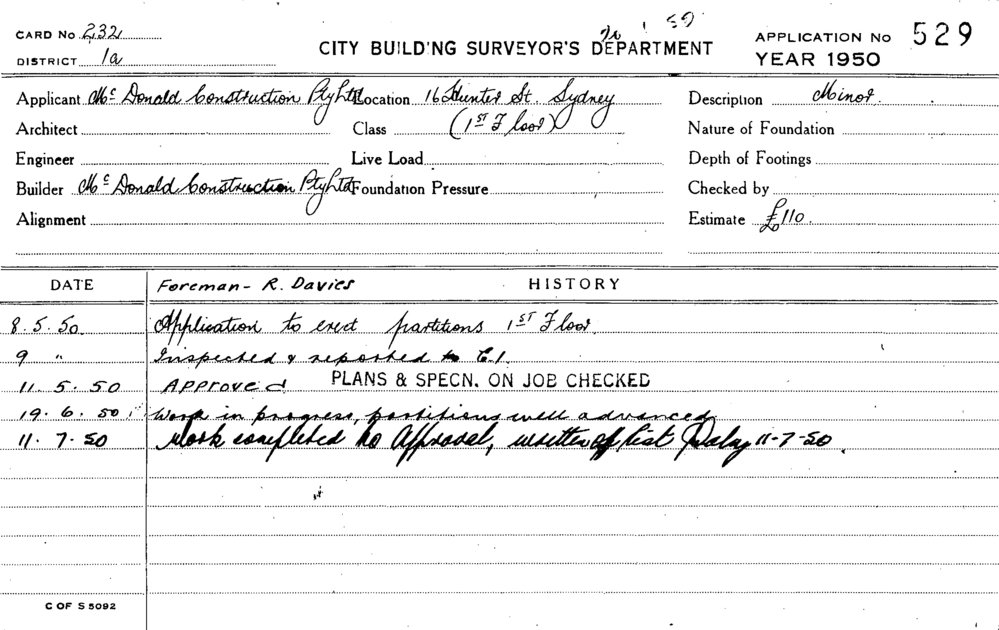 CARD No 232
DISTRICT 1a
CITY BUILD'NG SURVEYOR'S DEPARTMENT
APPLICATION No 529
YEAR 1950
Applicant Mc Donald Construction Pty Ltd Location 16 Hunter St. Sydney Description Minor.
Architect Class (1ST Floor) Nature of Foundation
Engineer Live Load Depth of Footings
Builder Mc Donald Construction Pty Ltd Foundation Pressure Checked by
Alignment Estimate £110.
DATE Foreman - R. Davies HISTORY
8.5.50 Application to erect partitions 1ST Floor.
9 " Inspected & reported to C.I.
11.5.50 Approved PLANS & SPECN. ON JOB CHECKED
19.6.50 Work in progress, partitions well advanced
11.7.50 Work completed to Approval, written off list Daley 11-7-50
C OF S 5092